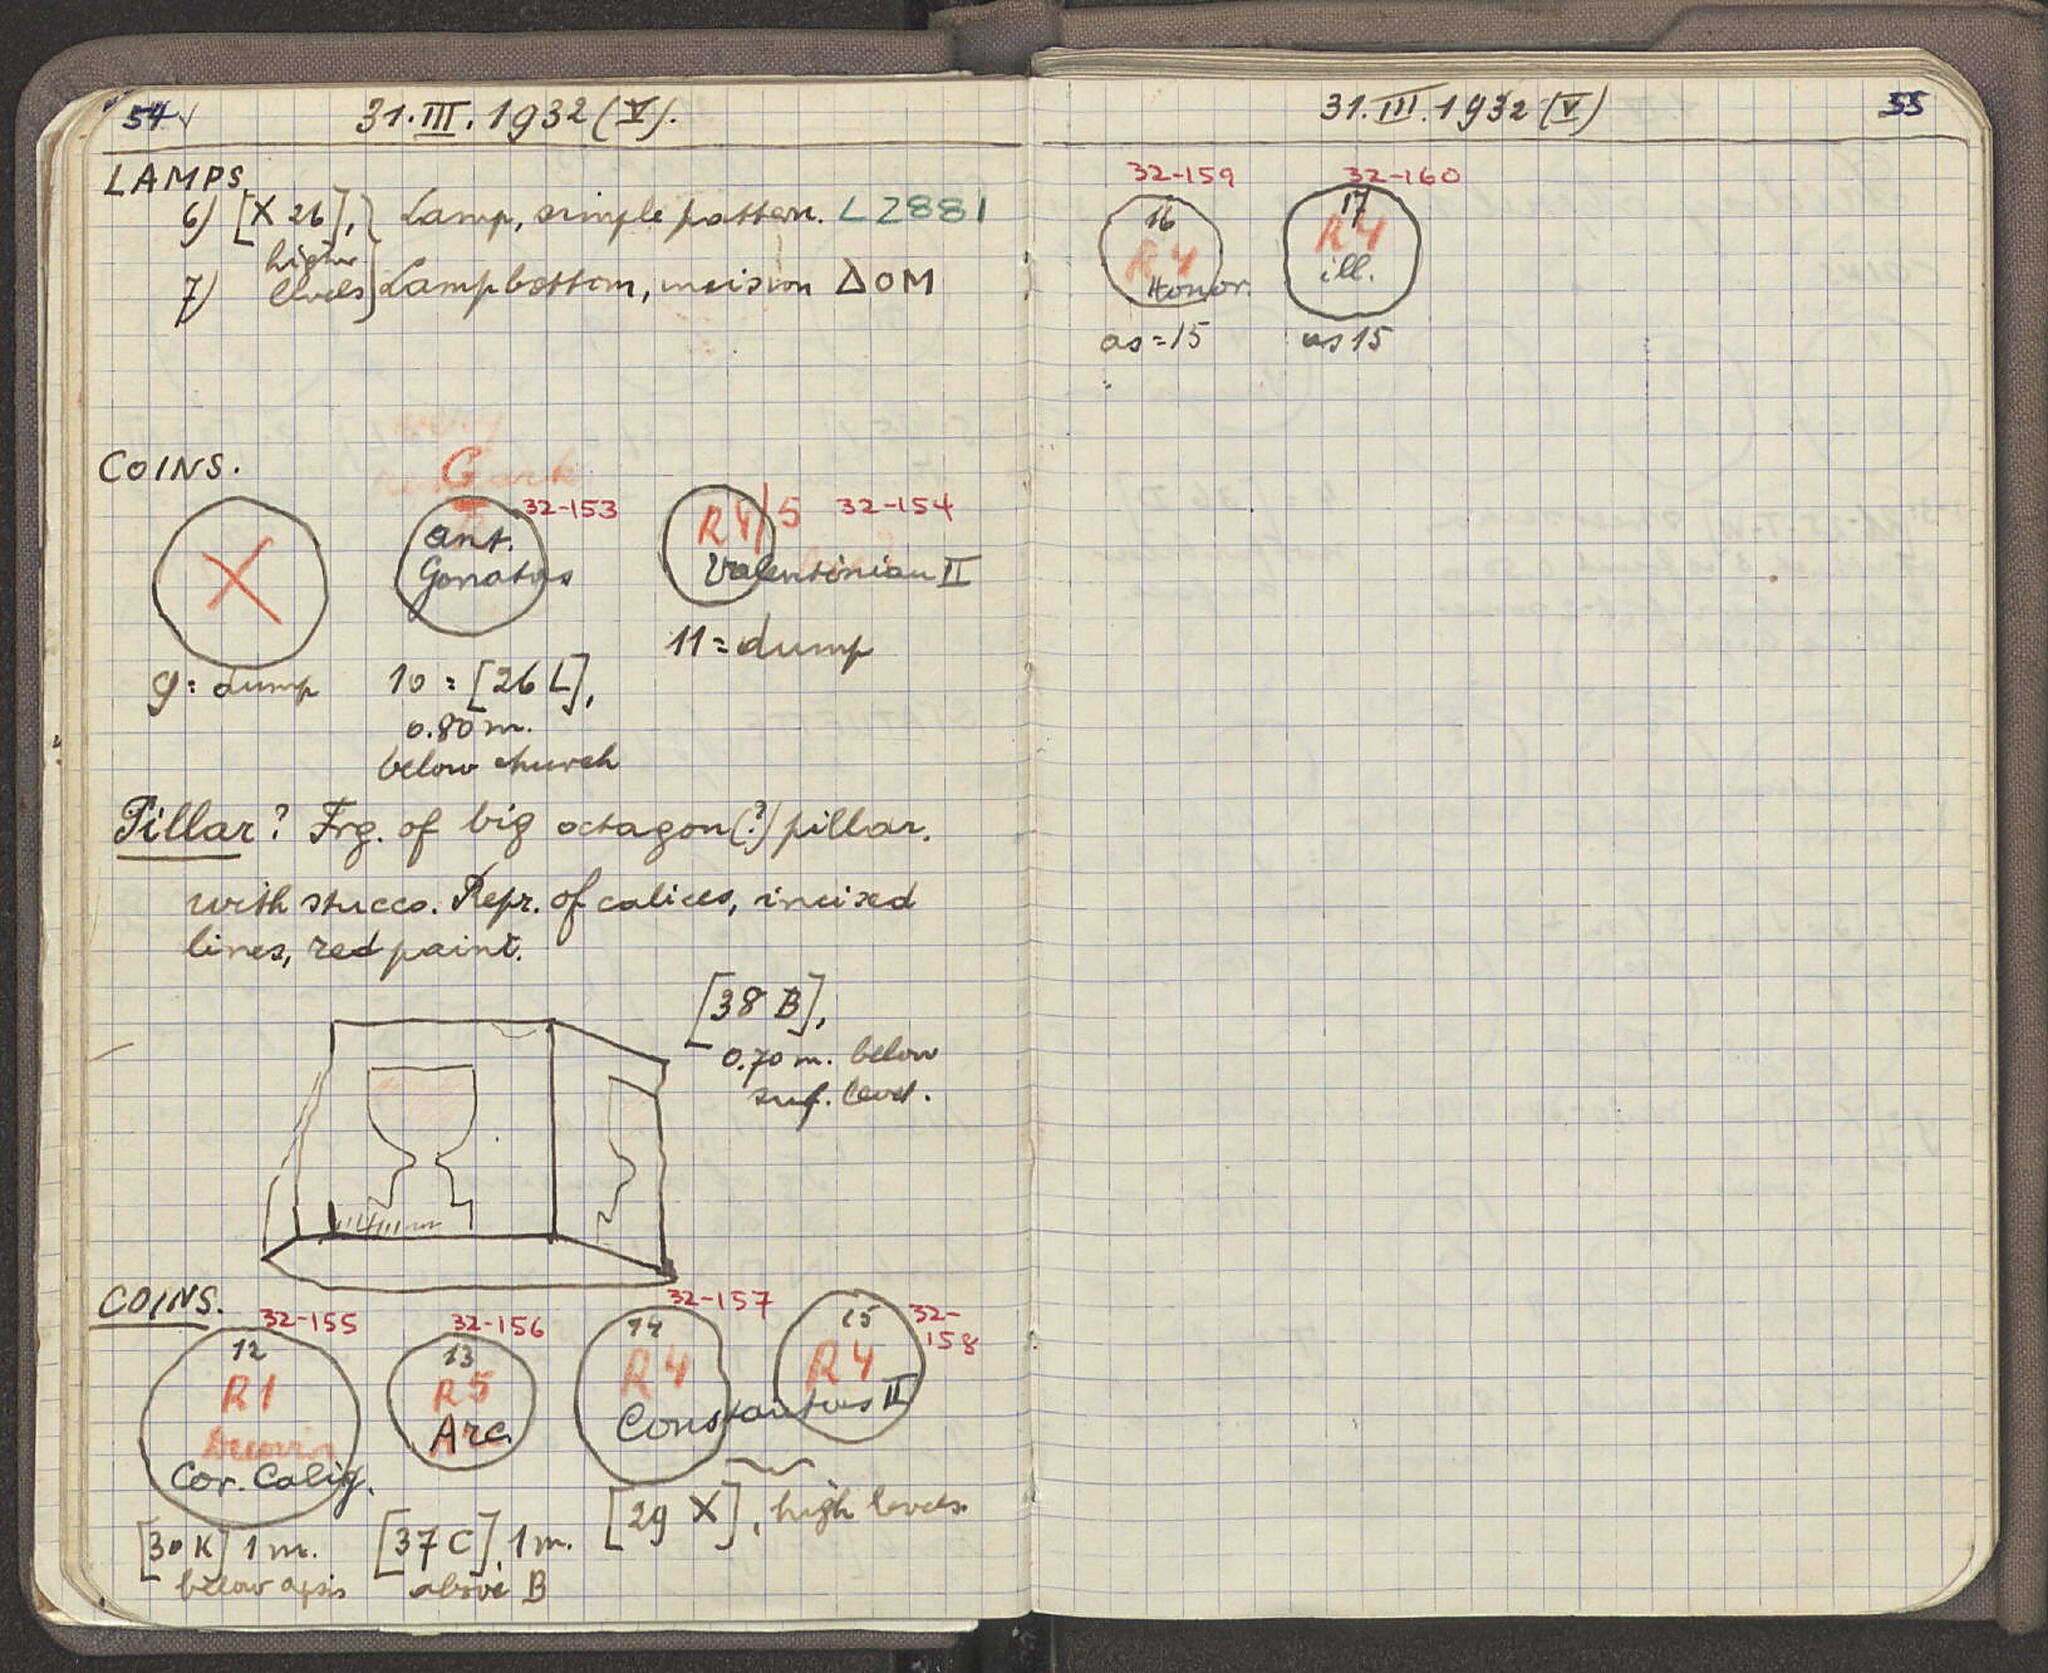 54
31.III.1932 (V).
LAMPS
6) [X 26], Lamp, simple pattern. L2881
higher
levels
7) Lampbottom, incision ΔOM
COINS.
G
32-153
32-154
X
Ant.
Gonatas
R4/5
Valentinian II
9 = dump
10 = [26 L],
0.80 m.
below church
11 = dump
Pillar? Frg. of big octagon(?) pillar.
with stucco. Repr. of calices, incised
lines, red paint.
[38 B],
0.70 m. below
surf. level.
COINS.
32-155
32-156
32-157
32-158
12
R1
Cor. Calig.
13
R5
Arc.
14
R4
15
R4
Constantius II
[30 K] 1 m.
below apsis
[37 C], 1 m.
above B
[29 X], high levels.
31.III.1932 (V)
55
32-159
32-160
16
R4
Honor.
17
R4
ill.
as = 15
as 15